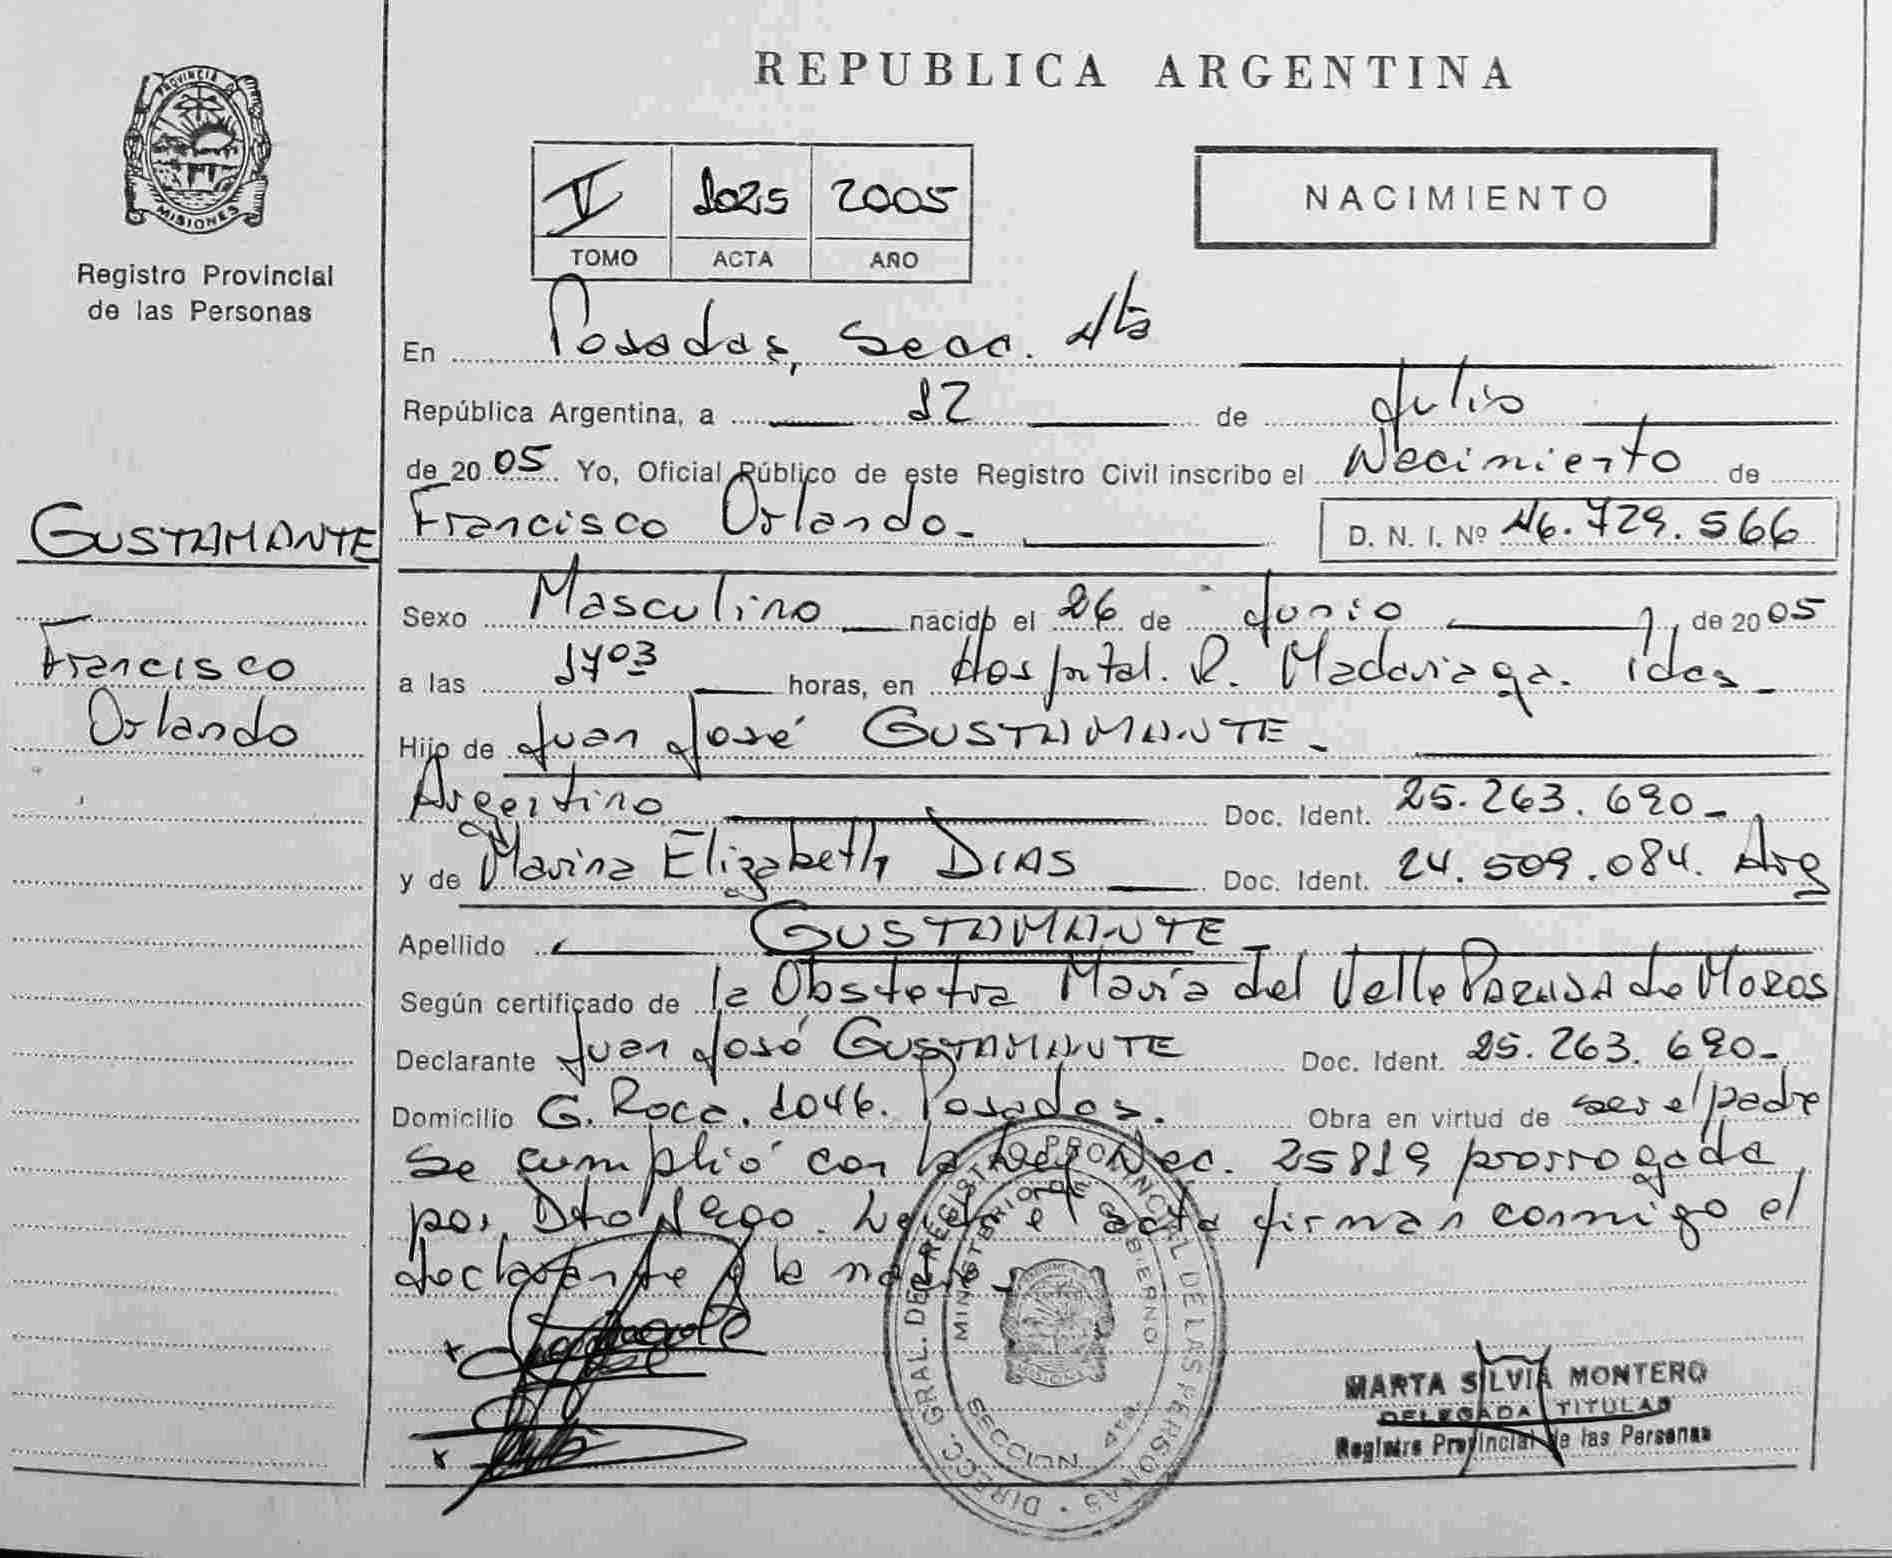 REPUBLICA ARGENTINA
PROVINCIA DE
MISIONES
Registro Provincial
de las Personas
V 1025 2005
TOMO ACTA AÑO
NACIMIENTO
En Posadas, Secc. 4ta
República Argentina, a 12 de Julio
de 2005 Yo, Oficial Público de este Registro Civil inscribo el Nacimiento de
GUSTAMANTE
Francisco Orlando
Francisco Orlando.- D. N. I. Nº 46.729.566
Sexo Masculino nacido el 26 de Junio de 2005
a las 1703 horas, en Hospital. R. Madariaga. Pdas.
Hijo de Juan José GUSTAMANTE.-
Argentino Doc. Ident. 25.263.690-
y de Marina Elizabeth DIAS Doc. Ident. 24.509.084. Arg
Apellido GUSTAMANTE
Según certificado de la Obstetra María del Valle de Moros
Declarante Juan José GUSTAMANTE Doc. Ident. 25.263.690-
Domicilio G. Roca. 1046. Posadas. Obra en virtud de ser el padre
Se cumplió con la Ley Nac. 25819 prorrogada
por Dto. Leída el acta firman conmigo el
declarante y la madre.
DIRECC. GRAL. DEL REGISTRO PROVINCIAL DE LAS PERSONAS
MINISTERIO DE GOBIERNO
SECCION 4ta.
MARTA SILVIA MONTERO
DELEGADA TITULAR
Registro Provincial de las Personas